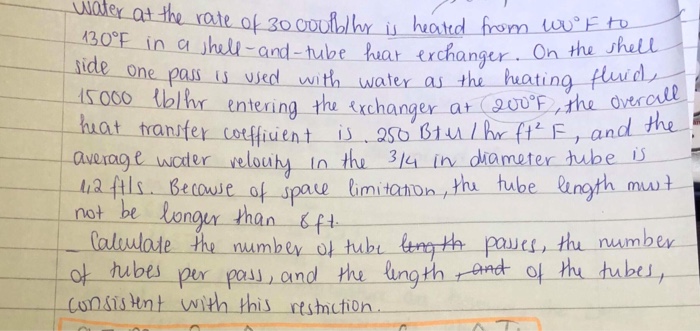 Water at the rate of 30 000 lb/hr is heated from 100°F to
130°F in a shell-and-tube hear exchanger. On the shell
side one pass is used with water as the heating fluid,
15000 lb/hr entering the exchanger at 200°F, the overall
heat transfer coefficient is 250 Btu/hr ft² F, and the
average water velocity in the 3/4 in diameter tube is
1,2 ft/s. Because of space limitation, the tube length must
not be longer than 8 ft.
- Calculate the number of tube length passes, the number
of tubes per pass, and the length and of the tubes,
consistent with this restriction.